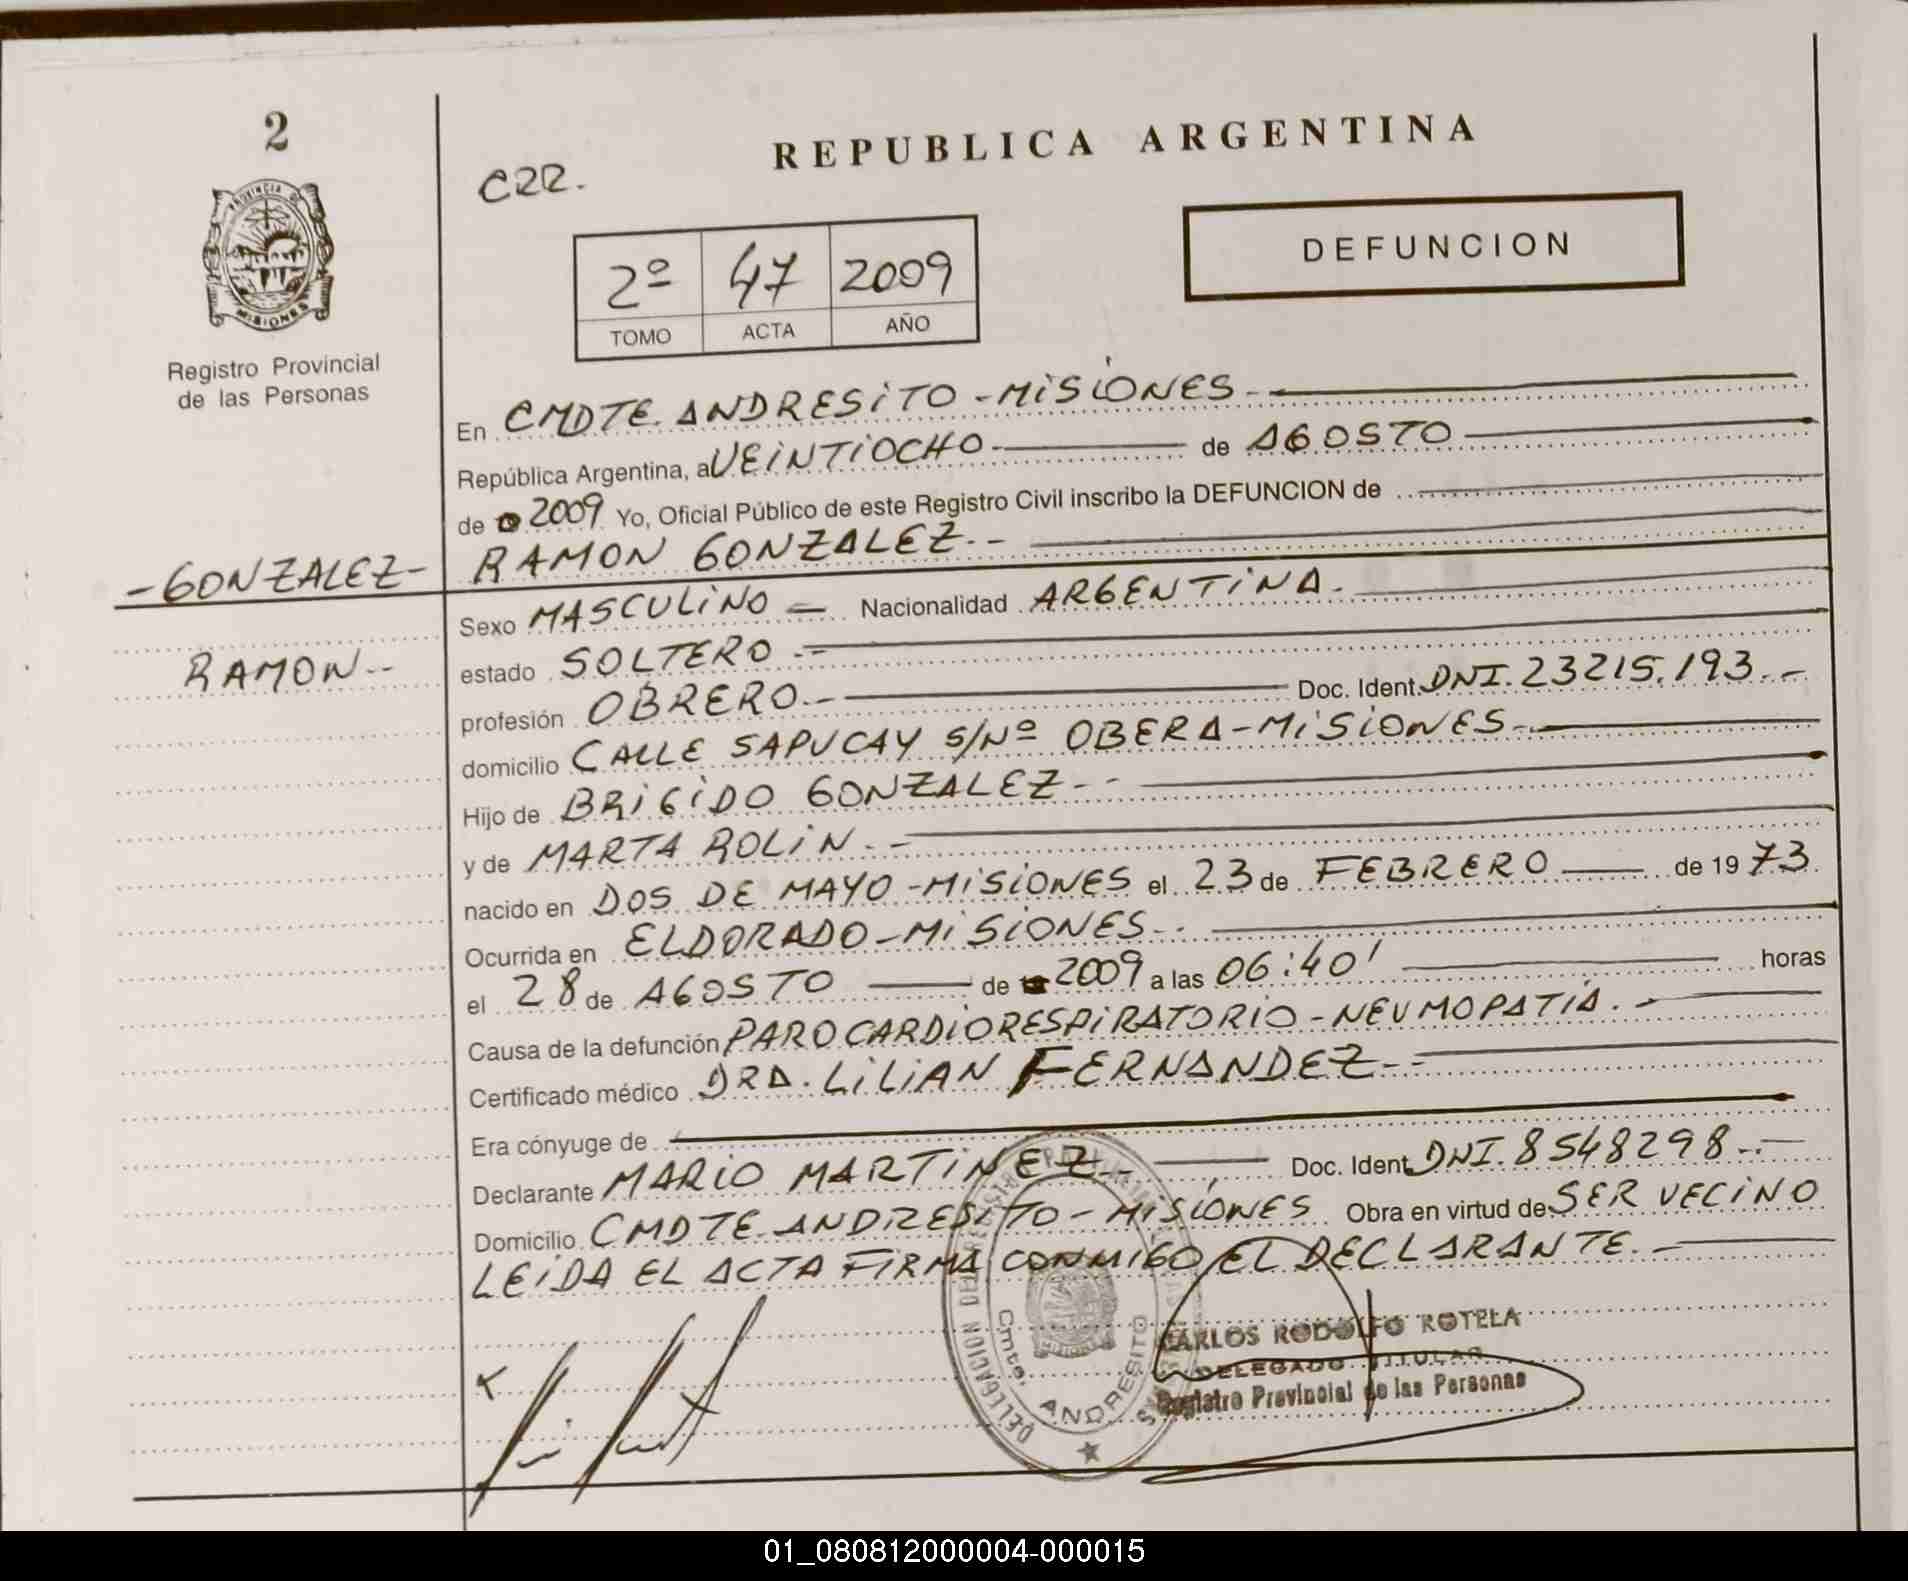 2
PROVINCIA DE
MISIONES
Registro Provincial
de las Personas
-GONZALEZ-
RAMON--
REPUBLICA ARGENTINA
C22.
2º 47 2009
TOMO ACTA AÑO
DEFUNCION
En CMDTE. ANDRESITO-MISIONES
República Argentina, a VEINTIOCHO de AGOSTO
de 2009 Yo, Oficial Público de este Registro Civil inscribo la DEFUNCION de
RAMON GONZALEZ.--
Sexo MASCULINO Nacionalidad ARGENTINA.
estado SOLTERO.--
profesión OBRERO.-- Doc. Ident. DNI.23215.193.--
domicilio CALLE SAPUCAY S/Nº OBERA-MISIONES--
Hijo de BRIGIDO GONZALEZ--
y de MARTA ROLIN.--
nacido en DOS DE MAYO-MISIONES el 23 de FEBRERO de 1973
Ocurrida en ELDORADO-MISIONES--.
el 28 de AGOSTO de 2009 a las 06:40' horas
Causa de la defunción PARO CARDIORESPIRATORIO-NEUMOPATIA.-
Certificado médico DRA. LILIAN FERNANDEZ--
Era cónyuge de
Declarante MARIO MARTINEZ-- Doc. Ident. DNI.8548298--
Domicilio CMDTE ANDRESITO-MISIONES Obra en virtud de SER VECINO
LEIDA EL ACTA FIRMA CONMIGO EL DECLARANTE.-
DELEGACION DEL REGISTRO PROVINCIAL DE LAS PERSONAS
Cmte. ANDRESITO
CARLOS RODOLFO ROTELA
DELEGADO TITULAR
Registro Provincial de las Personas
01_080812000004-000015